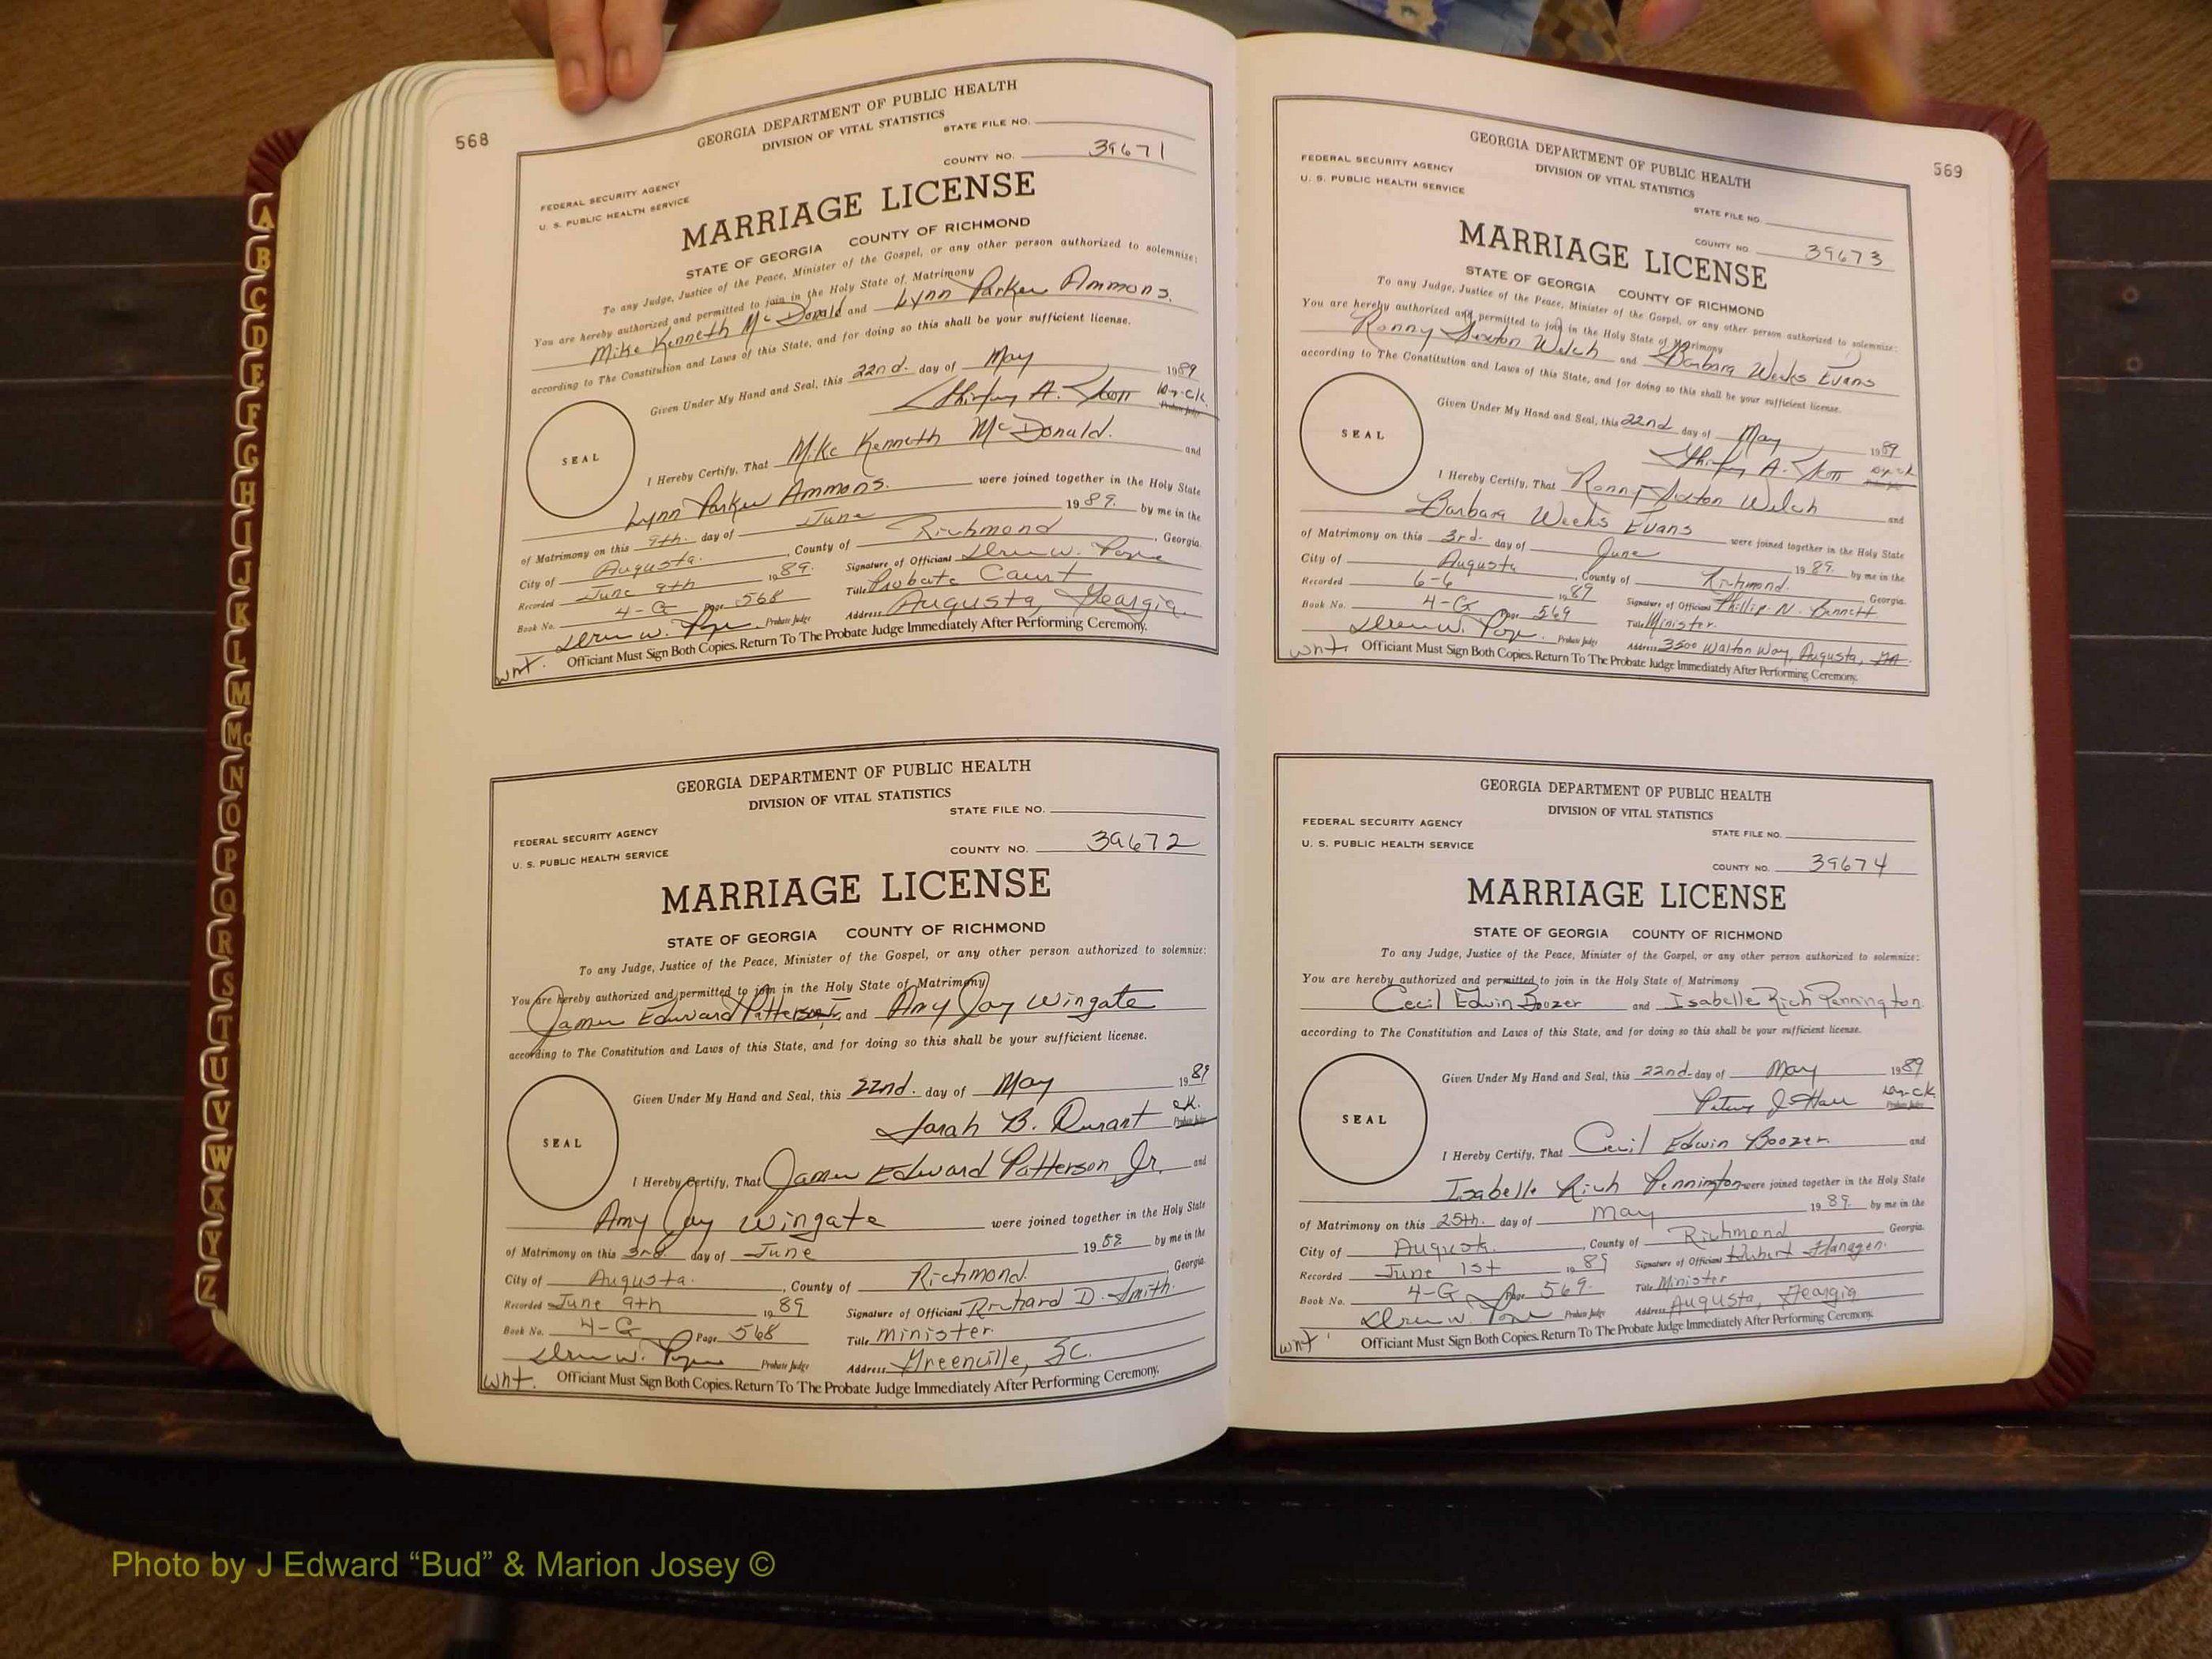 A
B
C
D
E
F
G
H
I
J
K
L
M
Mc
N
O
P
Q
R
S
T
U
V
W
X
Y
Z
568
GEORGIA DEPARTMENT OF PUBLIC HEALTH
DIVISION OF VITAL STATISTICS
STATE FILE NO.
COUNTY NO. 39671
FEDERAL SECURITY AGENCY
U. S. PUBLIC HEALTH SERVICE
MARRIAGE LICENSE
STATE OF GEORGIA COUNTY OF RICHMOND
To any Judge, Justice of the Peace, Minister of the Gospel, or any other person authorized to solemnize:
You are hereby authorized and permitted to join in the Holy State of Matrimony
Mike Kenneth McDonald and Lynn Parker Ammons.
according to The Constitution and Laws of this State, and for doing so this shall be your sufficient license.
Given Under My Hand and Seal, this 22nd. day of May 1989
Shirley A. Scott Dy-ck. Probate Judge
SEAL
I Hereby Certify, That Mike Kenneth McDonald. and
Lynn Parker Ammons. were joined together in the Holy State
of Matrimony on this 9th. day of June 1989. by me in the
City of Augusta. , County of Richmond , Georgia.
Recorded June 9th 1989. Signature of Official W. Pope
Book No. 4-G Page 568 Title Probate Court
W. Pope. Probate Judge Address Augusta, Georgia.
wnt. Officiant Must Sign Both Copies. Return To The Probate Judge Immediately After Performing Ceremony.
GEORGIA DEPARTMENT OF PUBLIC HEALTH
DIVISION OF VITAL STATISTICS
STATE FILE NO.
FEDERAL SECURITY AGENCY
U. S. PUBLIC HEALTH SERVICE
COUNTY NO. 39672
MARRIAGE LICENSE
STATE OF GEORGIA COUNTY OF RICHMOND
To any Judge, Justice of the Peace, Minister of the Gospel, or any other person authorized to solemnize:
You are hereby authorized and permitted to join in the Holy State of Matrimony
James Edward Patterson Jr. and Amy Joy Wingate
according to The Constitution and Laws of this State, and for doing so this shall be your sufficient license.
Given Under My Hand and Seal, this 22nd. day of May 1989
Sarah B. Durant ck. Probate Judge
SEAL
I Hereby Certify, That James Edward Patterson Jr. and
Amy Joy Wingate were joined together in the Holy State
of Matrimony on this 3rd. day of June 19 by me in the
City of Augusta. , County of Richmond. , Georgia.
Recorded June 9th 1989 Signature of Official Richard D. Smith.
Book No. 4-G Page 568 Title Minister.
W. Pope Probate Judge Address Greenville, SC.
wnt. Officiant Must Sign Both Copies. Return To The Probate Judge Immediately After Performing Ceremony.
569
GEORGIA DEPARTMENT OF PUBLIC HEALTH
DIVISION OF VITAL STATISTICS
FEDERAL SECURITY AGENCY
U. S. PUBLIC HEALTH SERVICE
STATE FILE NO.
COUNTY NO. 39673
MARRIAGE LICENSE
STATE OF GEORGIA COUNTY OF RICHMOND
To any Judge, Justice of the Peace, Minister of the Gospel, or any other person authorized to solemnize:
You are hereby authorized and permitted to join in the Holy State of Matrimony
Ronny Sexton Welch and Barbara Weeks Evans
according to The Constitution and Laws of this State, and for doing so this shall be your sufficient license.
Given Under My Hand and Seal, this 22nd day of May 1989
Shirley A. Scott Dy-ck
SEAL
I Hereby Certify, That Ronny Sexton Welch and
Barbara Weeks Evans were joined together in the Holy State
of Matrimony on this 3rd. day of June 1989. by me in the
City of Augusta , County of Richmond. Georgia.
Recorded 6-6 1989 Signature of Official Phillip N. Bennett.
Book No. 4-G Page 569 Title Minister.
W. Pope. Probate Judge Address 3500 Walton Way, Augusta, GA.
wnt. Officiant Must Sign Both Copies. Return To The Probate Judge Immediately After Performing Ceremony.
GEORGIA DEPARTMENT OF PUBLIC HEALTH
DIVISION OF VITAL STATISTICS
FEDERAL SECURITY AGENCY
STATE FILE NO.
U. S. PUBLIC HEALTH SERVICE
COUNTY NO. 39674
MARRIAGE LICENSE
STATE OF GEORGIA COUNTY OF RICHMOND
To any Judge, Justice of the Peace, Minister of the Gospel, or any other person authorized to solemnize:
You are hereby authorized and permitted to join in the Holy State of Matrimony
Cecil Edwin Boozer and Isabelle Rich Pennington
according to The Constitution and Laws of this State, and for doing so this shall be your sufficient license.
Given Under My Hand and Seal, this 22nd- day of May 1989
J. Hall Dy-ck. Probate Judge
SEAL
I Hereby Certify, That Cecil Edwin Boozer. and
Isabelle Rich Pennington were joined together in the Holy State
of Matrimony on this 25th. day of May 1989. by me in the
City of Augusta. , County of Richmond , Georgia.
Recorded June 1st 1989 Signature of Official Hubert Flanagen.
Book No. 4-G Page 569. Title Minister
W. Pope Probate Judge Address Augusta, Georgia
wnt. Officiant Must Sign Both Copies. Return To The Probate Judge Immediately After Performing Ceremony.
Photo by J Edward “Bud” & Marion Josey ©